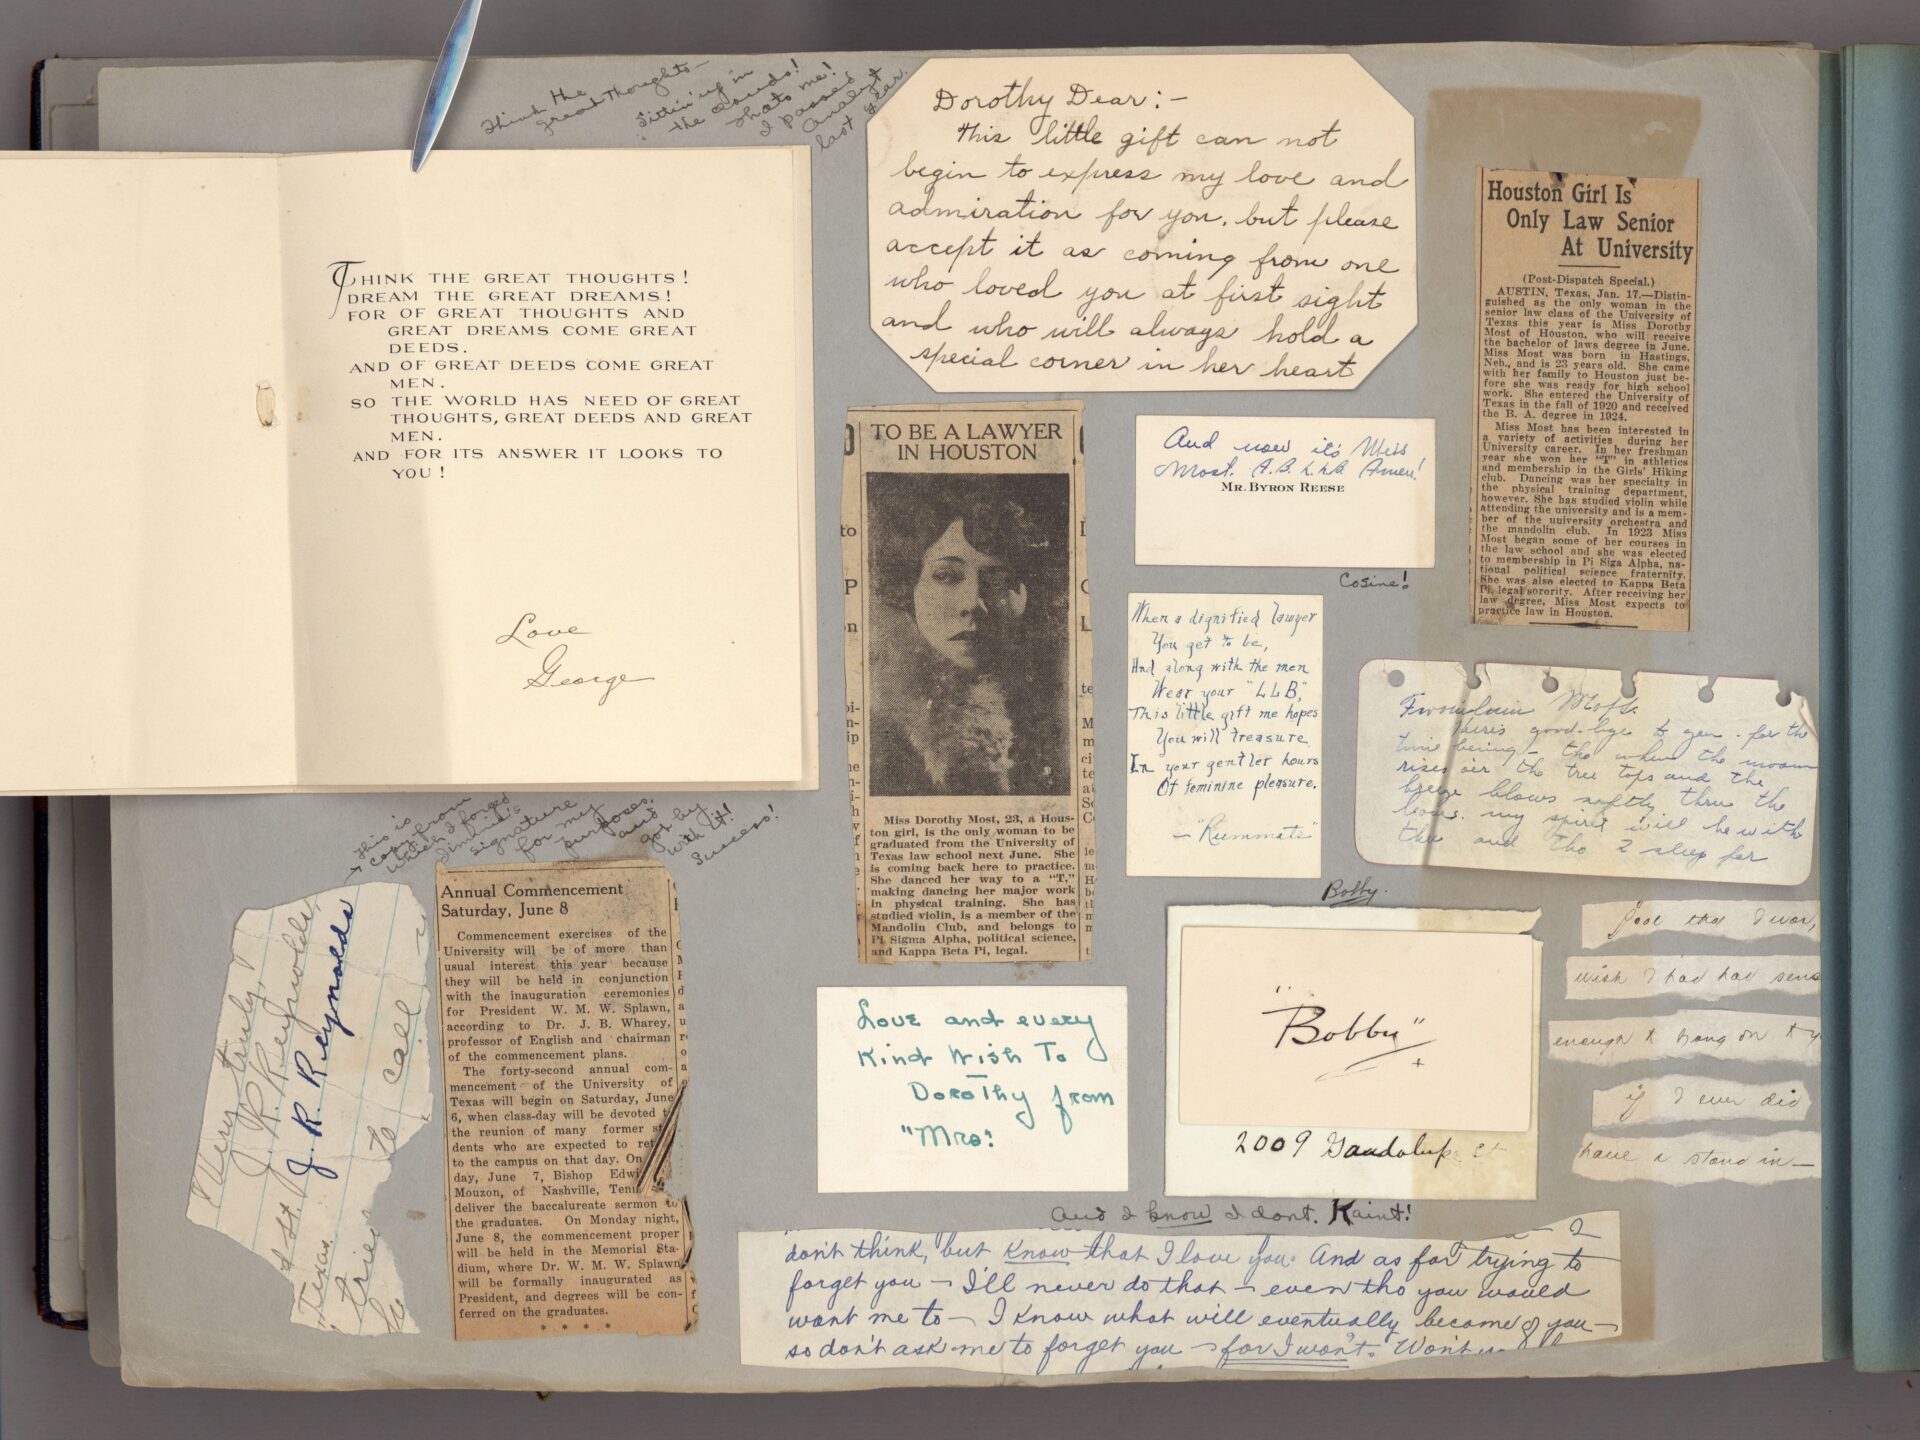 Think the
great thoughts—
Sittin' up in
the clouds!
Thats me!
I passed
Analyt
last year.
THINK THE GREAT THOUGHTS!
DREAM THE GREAT DREAMS!
FOR OF GREAT THOUGHTS AND
GREAT DREAMS COME GREAT
DEEDS.
AND OF GREAT DEEDS COME GREAT
MEN.
SO THE WORLD HAS NEED OF GREAT
THOUGHTS, GREAT DEEDS AND GREAT
MEN.
AND FOR ITS ANSWER IT LOOKS TO
YOU!
Love
George
Dorothy Dear:-
This little gift can not
begin to express my love and
admiration for you, but please
accept it as coming from one
who loved you at first sight
and who will always hold a
special corner in her heart
Houston Girl Is
Only Law Senior
At University
(Post-Dispatch Special.)
AUSTIN, Texas, Jan. 17.—Distin-
guished as the only woman in the
senior law class of the University of
Texas this year is Miss Dorothy
Most of Houston, who will receive
the bachelor of laws degree in June.
Miss Most was born in Hastings,
Neb., and is 23 years old. She came
with her family to Houston just be-
fore she was ready for high school
work. She entered the University of
Texas in the fall of 1920 and received
the B. A. degree in 1924.
Miss Most has been interested in
a variety of activities during her
University career. In her freshman
year she won her "T" in athletics
and membership in the Girls' Hiking
club. Dancing was her specialty in
the physical training department,
however. She has studied violin while
attending the university and is a mem-
ber of the university orchestra and
the mandolin club. In 1923 Miss
Most began some of her courses in
the law school and she was elected
to membership in Pi Siga Alpha, na-
tional political science fraternity.
She was also elected to Kappa Beta
Pi, legal sorority. After receiving her
law degree, Miss Most expects to
practice law in Houston.
TO BE A LAWYER
IN HOUSTON
Miss Dorothy Most, 23, a Hous-
ton girl, is the only woman to be
graduated from the University of
Texas law school next June. She
is coming back here to practice.
She danced her way to a "T,"
making dancing her major work
in physical training. She has
studied violin, is a member of the
Mandolin Club, and belongs to
Pi Sigma Alpha, political science,
and Kappa Beta Pi, legal.
And now it's Miss
Most. A.B. L.L.B Amen!
MR. BYRON REESE
Cosine!
When a dignified lawyer
You get to be,
And along with the men
Wear your "LLB,"
This little gift me hopes
You will treasure
In your gentler hours
Of feminine pleasure.
— "Rummate"
Most.
Here's good-bye to you - for the
time being - tho when the moon
rises o'er the tree tops and the
breeze blows softly thru the
leaves, my spirit will be with
thee and tho I sleep far
fool that I was,
wish I had had sens
enough to hang on to y
if I ever did
have a stand in—
Bobby.
"Bobby"
2009 Guadalupe St
Love and every
Kind Wish To
Dorothy from
"Mrs."
And I know I don't. Kaint!
I
don't think, but know that I love you. And as for trying to
forget you — I'll never do that — even tho you would
want me to — I know what will eventually become of you —
so don't ask me to forget you — for I won't. Won't
This is
copy from
which I forged
Jimmie's
signature
for my
purposes.
and
got by
with it!
Success!
Very truly,
J. R. Reynolds,
J. R. Reynolds
St.
Texas
tries to call
Annual Commencement
Saturday, June 8
Commencement exercises of the
University will be of more than
usual interest this year because
they will be held in conjunction
with the inauguration ceremonies
for President W. M. W. Splawn,
according to Dr. J. B. Wharey,
professor of English and chairman
of the commencement plans.
The forty-second annual com-
mencement of the University of
Texas will begin on Saturday, June
6, when class-day will be devoted t
the reunion of many former st
dents who are expected to ret
to the campus on that day. On
day, June 7, Bishop Edwi
Mouzon, of Nashville, Tenn
deliver the baccalureate sermon to
the graduates. On Monday night,
June 8, the commencement proper
will be held in the Memorial Sta-
dium, where Dr. W. M. W. Splawn
will be formally inaugurated as
President, and degrees will be con-
ferred on the graduates.
* * * *